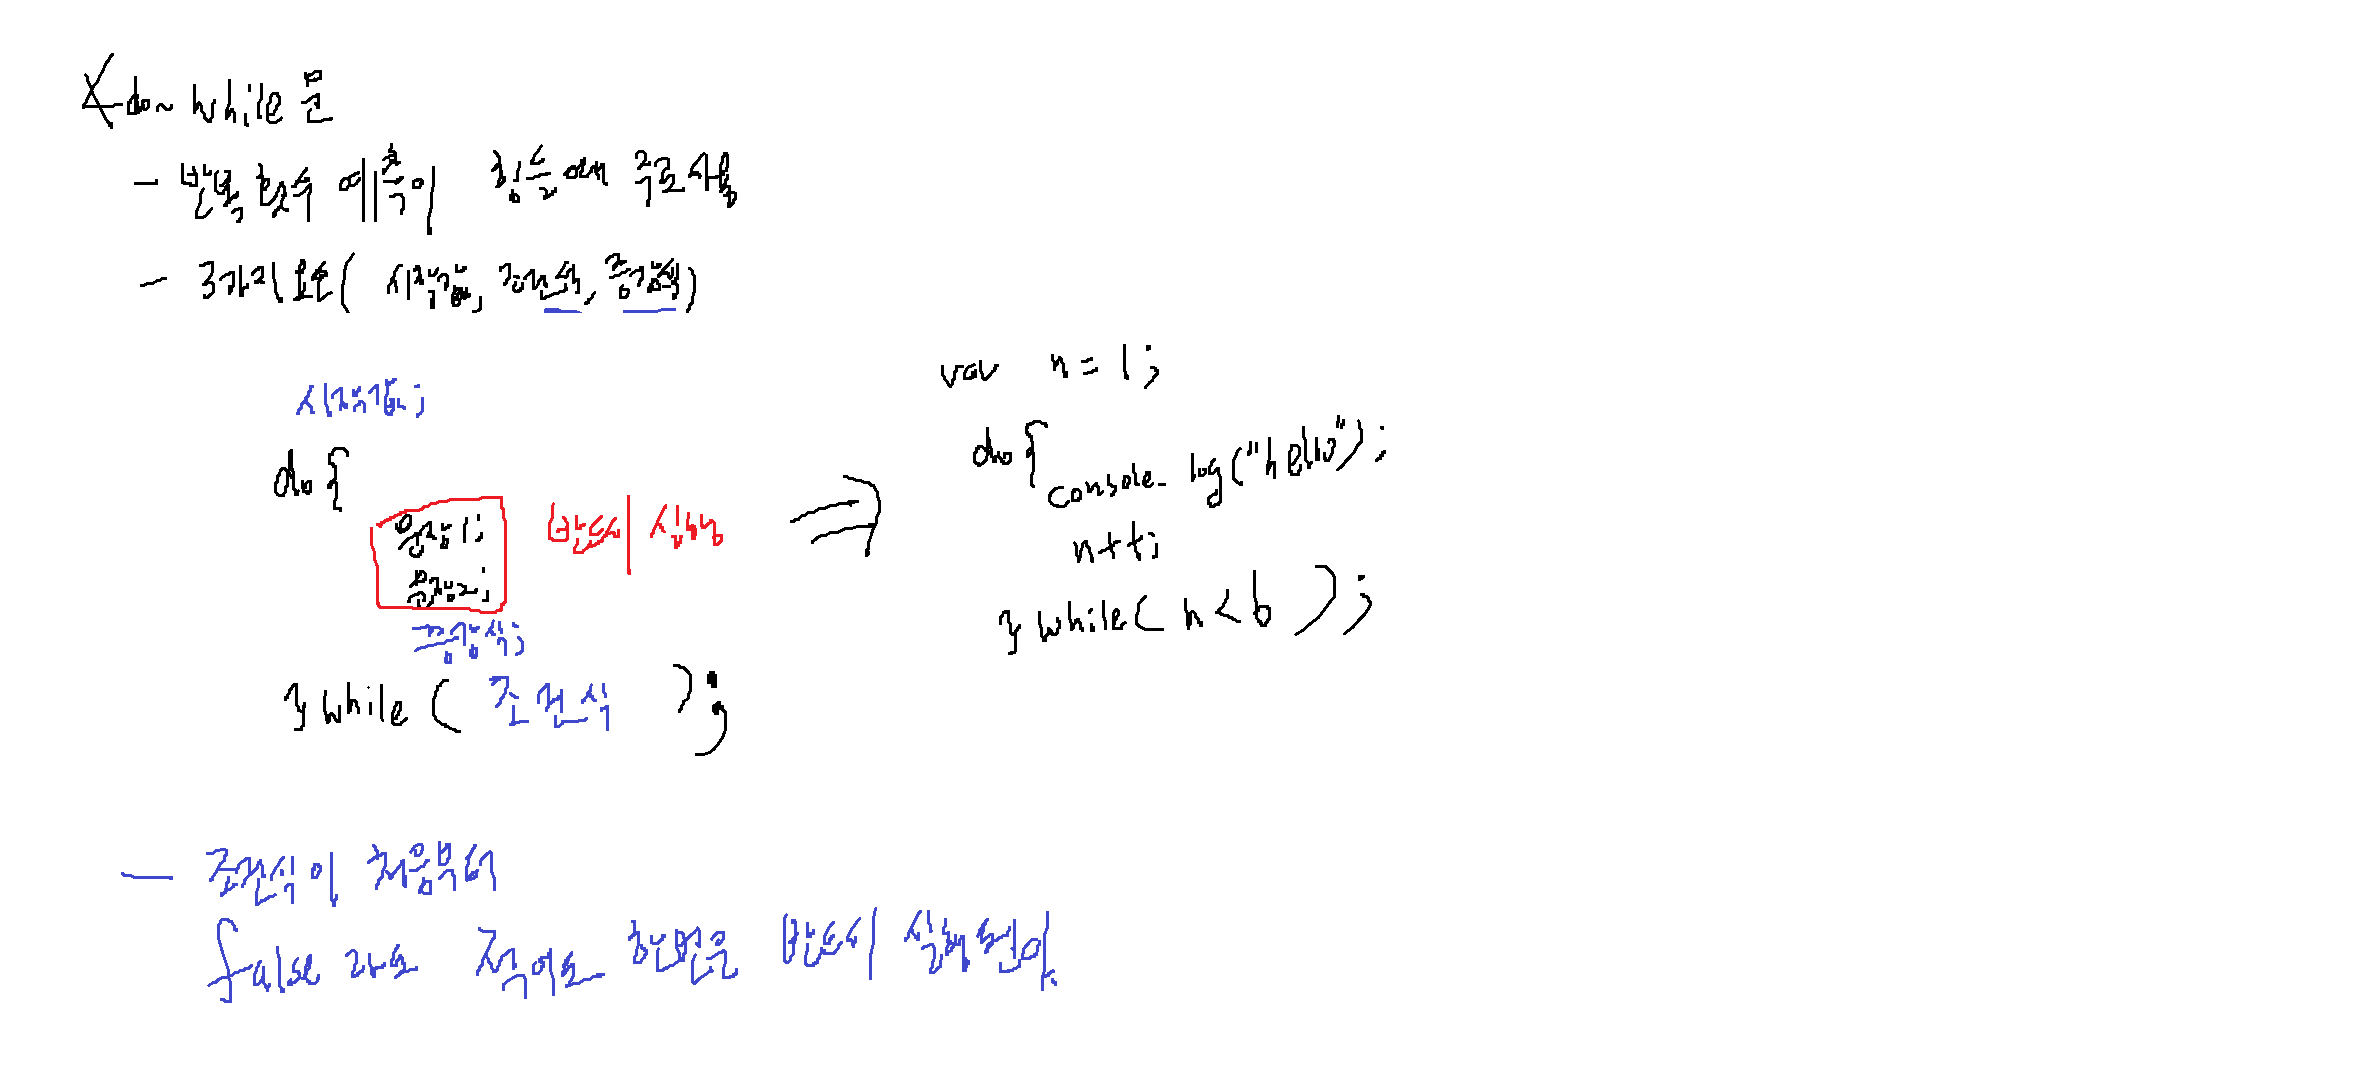 do~while문
- 반복횟수 예측이 힘들 때 주로 사용
- 3가지 요소( 시작값, 조건식, 증감식)
시작값;
do{
문장1;
문장2;
반드시 실행
증감식;
}while( 조건식 );
⇒
var n=1;
do{
console.log("hello");
n++;
}while( n<6 );
- 조건식이 처음부터
false 라도 적어도 한번은 반드시 실행된다.